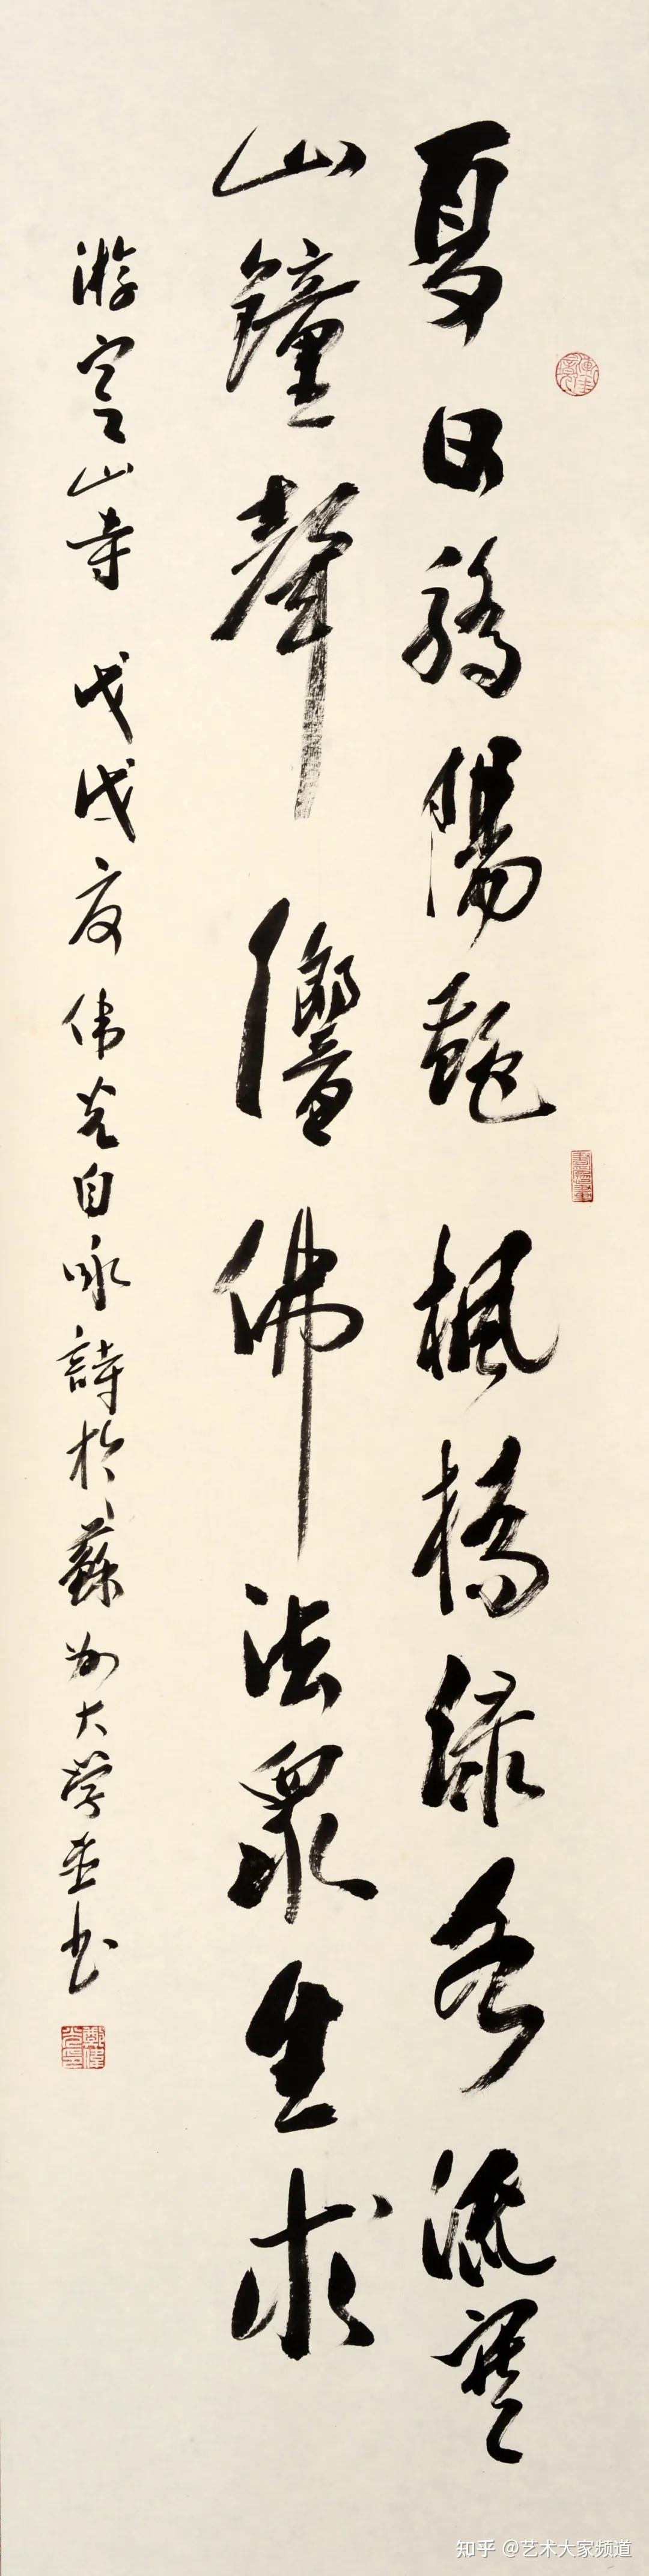 夏日驕陽艷楓橋緑水流寒
山鐘聲響佛法眾生求
游寒山寺 戊戌夏偉光自咏詩於蘇州大學並書
知乎 @艺术大家频道